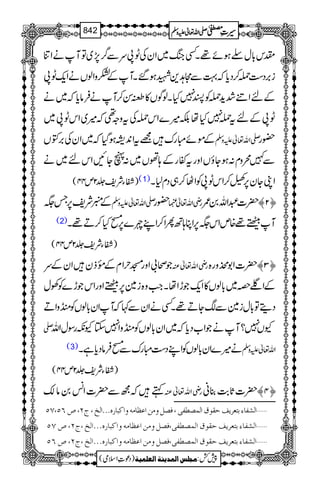 سیرتِ مصطفیٰ صلی اللہ تعالیٰ علیہ وسلم 842
مقدس بال سلے ہوئے تھے۔ کسی جنگ میں ان کی ٹوپی سر سے گر پڑی تو آپ نے اتنا
زبردست حملہ کر دیا کہ بہت سے مجاہدین شہید ہو گئے۔ آپ کے لشکر والوں نے ایک ٹوپی
کے لئے اتنے شدید حملہ کو پسند نہیں کیا۔ لوگوں کا طعنہ سن کر آپ نے فرمایا کہ میں نے
ٹوپی کے لئے یہ حملہ نہیں کیا تھا بلکہ میرے اس حملہ کی یہ وجہ تھی کہ میری اس ٹوپی میں
حضور صلی اللہ تعالیٰ علیہ وسلم کے موئے مبارک ہیں مجھے یہ اندیشہ ہو گیا کہ میں ان کی برکتوں
سے کہیں محروم نہ ہو جاؤں اور یہ کفار کے ہاتھوں میں نہ پہنچ جائیں اس لئے میں نے
اپنی جان پر کھیل کر اس ٹوپی کو اٹھا کر ہی دم لیا۔(1) (شفاء شریف جلد۲ ص۴۴)
﴿۲﴾ حضرت عبداللہ بن عمر رضی اللہ تعالیٰ عنہما حضور صلی اللہ تعالیٰ علیہ وسلم کے منبر شریف پر جس جگہ
آپ بیٹھتے تھے خاص اس جگہ پر اپنا ہاتھ پھرا کر اپنے چہرے پر مسح کیا کرتے تھے۔(2)
(شفاء شریف جلد۲ ص۴۴)
﴿۳﴾ حضرت ابو محذورہ رضی اللہ تعالیٰ عنہ جو صحابی اور مسجد حرام کے مؤذن ہیں ان کے سر
کے اگلے حصہ میں بالوں کا ایک جوڑا تھا۔ جب وہ زمین پر بیٹھتے اور اس جوڑے کو کھول
دیتے تو بال زمین سے لگ جاتے تھے۔ کسی نے ان سے کہا کہ آپ ان بالوں کو منڈواتے
کیوں نہیں؟ آپ نے جواب دیا کہ میں ان بالوں کو منڈوا نہیں سکتا کیونکہ رسول اللہ صلی
اللہ تعالیٰ علیہ وسلم نے میرے ان بالوں کو اپنے دست مبارک سے مسح فرما دیا ہے۔(3)
(شفاء شریف جلد۲ ص۴۴)
﴿۴﴾ حضرت ثابت بنانی رضی اللہ تعالیٰ عنہ کہتے ہیں کہ مجھ سے حضرت انس بن مالک
الشفاء بتعریف حقوق المصطفی،فصل ومن اعظامہ واکبارہ...الخ، ج۲، ص ۵۶،۵۷
الشفاء بتعریف حقوق المصطفی،فصل ومن اعظامہ واکبارہ...الخ، ج۲، ص ۵۷
الشفاء بتعریف حقوق المصطفی،فصل ومن اعظامہ واکبارہ...الخ، ج۲، ص ۵۶
پیش کش: مجلس المدینۃ العلمیۃ (دعوتِ اسلامی)